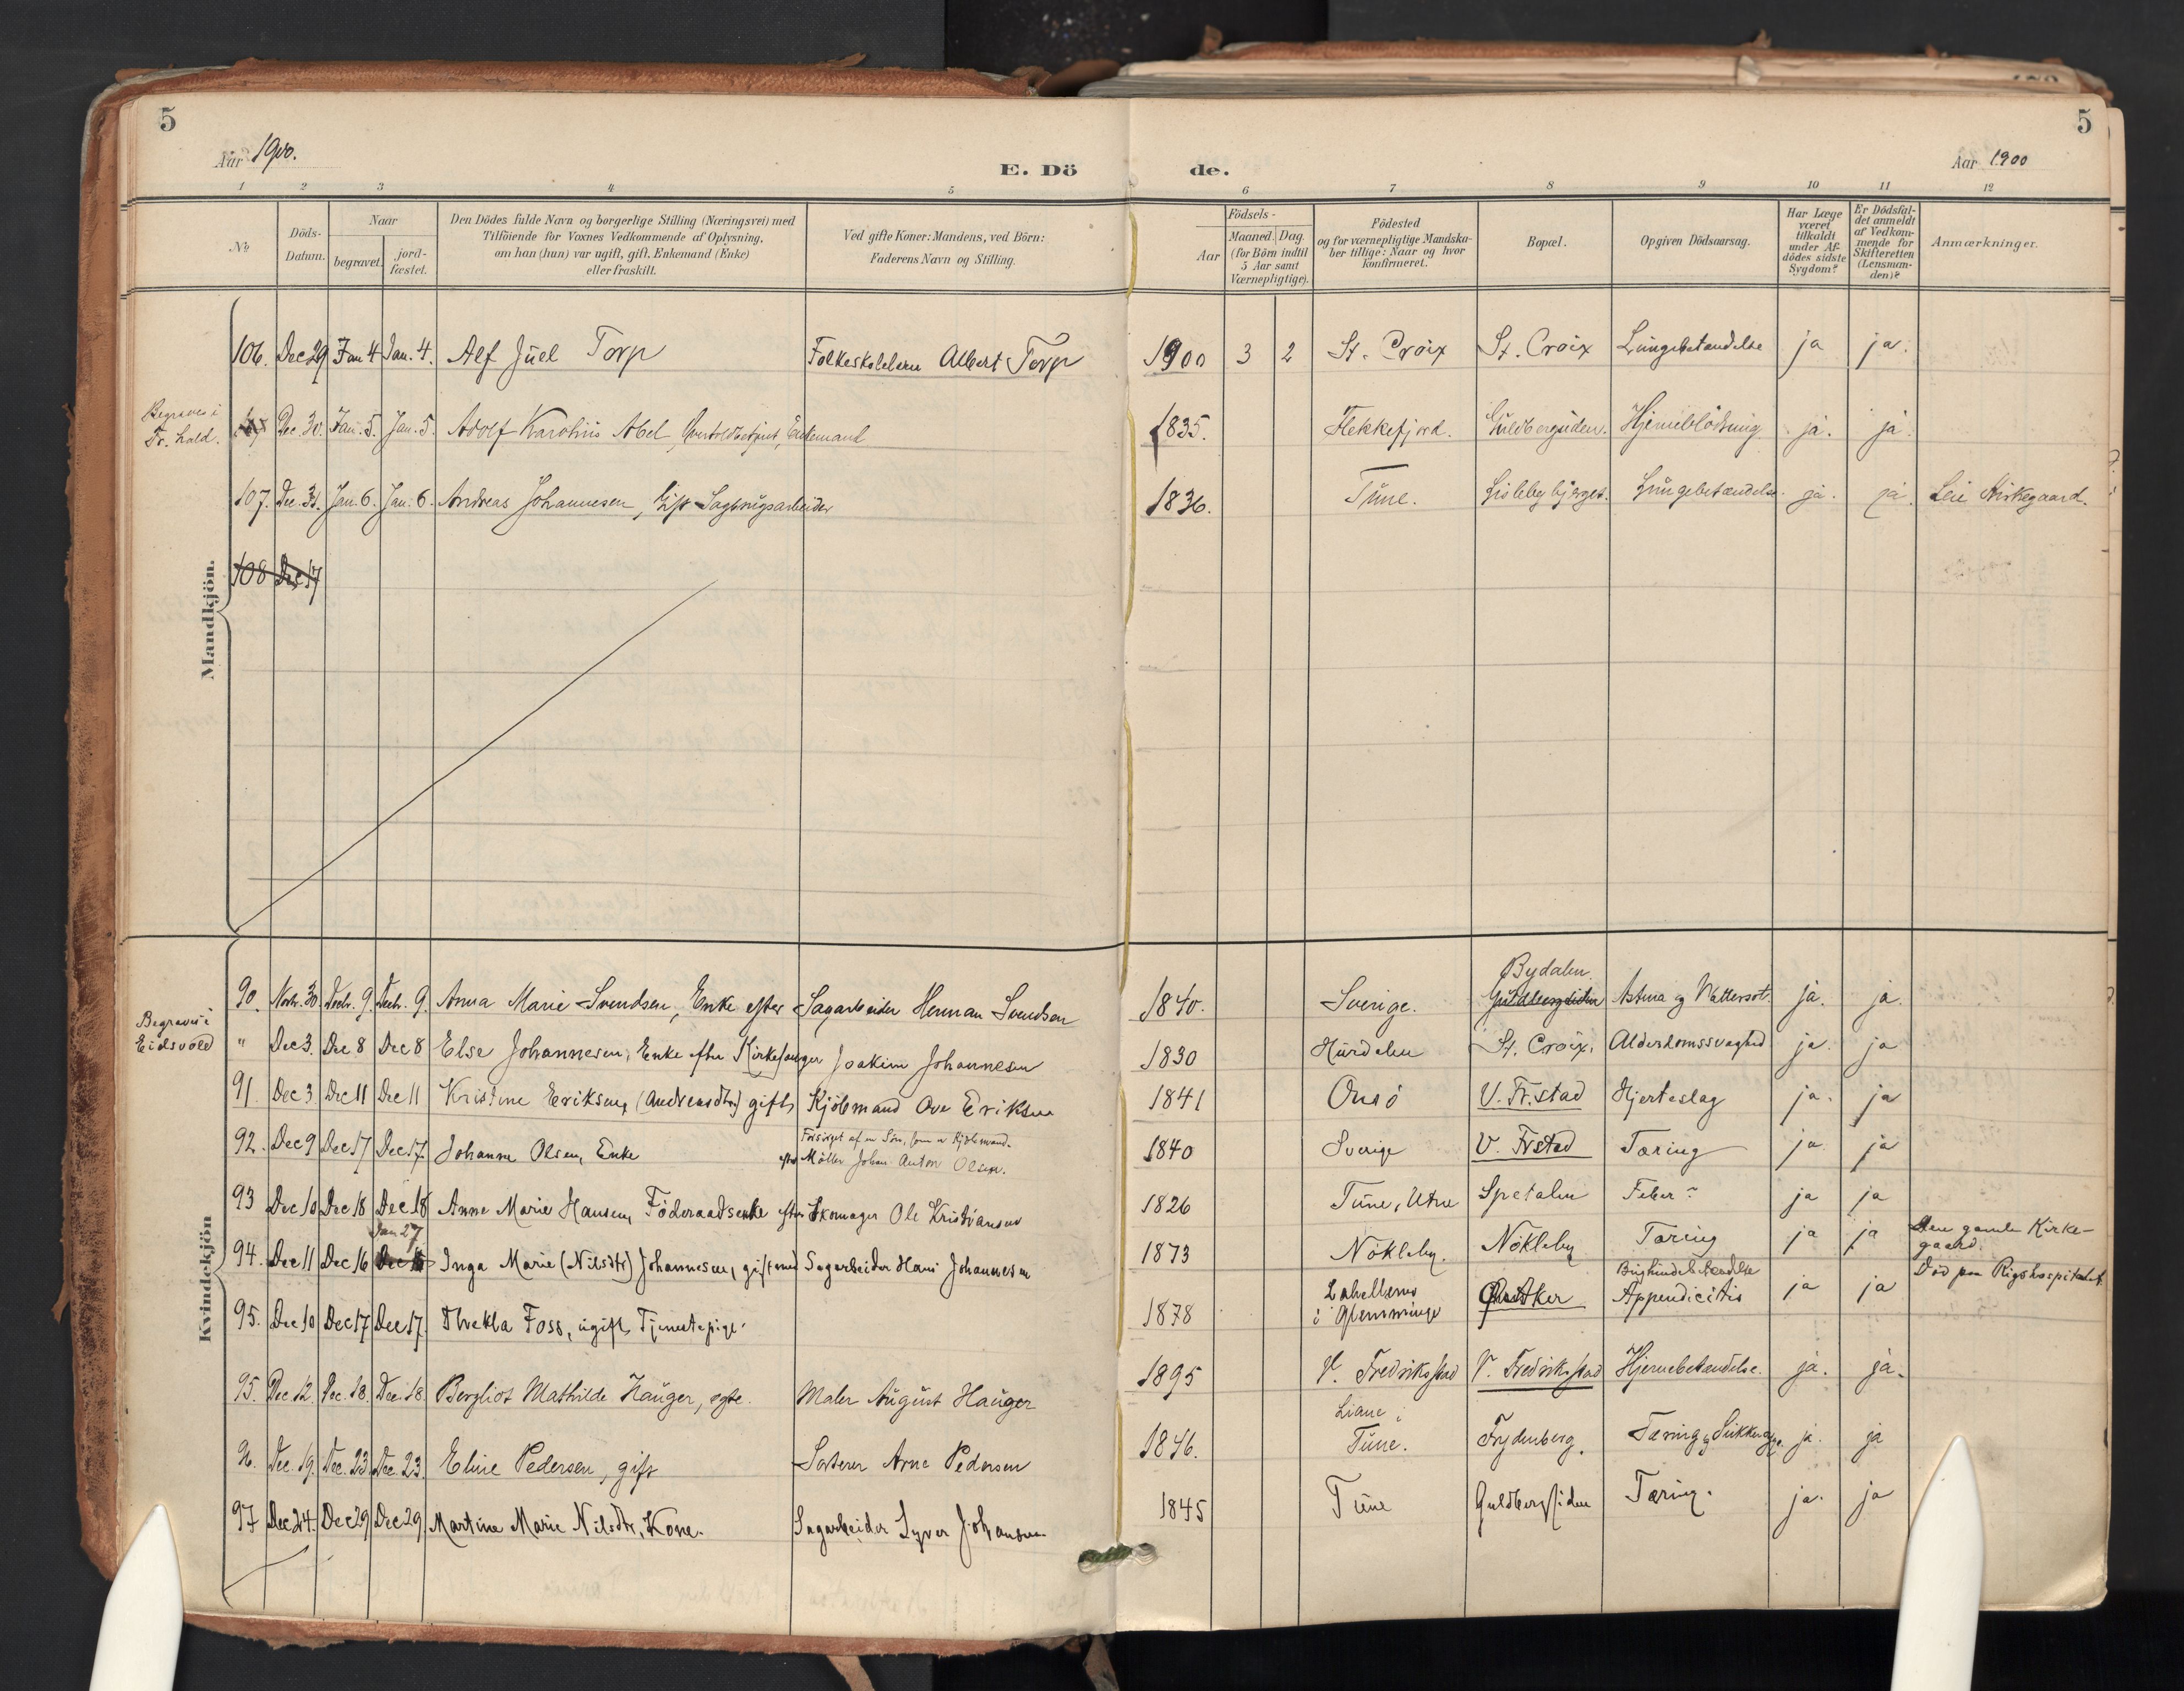 5
5
Aar 1900.
E. Dö
de.
Aar 1900
1 2 3 4 5 6 7 8 9 10 11 12
No.
Döds-
Datum.
Naar
begravet.
jord-
fæstet.
Den Dödes fulde Navn og borgerlige Stilling (Næringsvei) med
Tilföiende for Voxnes Vedkommende af Oplysning,
om han (hun) var ugift, gift, Enkemand (Enke)
eller fraskilt.
Ved gifte Koner: Mandens, ved Börn:
Faderens Navn og Stilling.
Födsels-
Aar
Maaned. Dag.
(for Börn indtil
5 Aar samt
Værnepligtige).
Födested
og for værnepligtige Mandska-
ber tillige: Naar og hvor
konfirmeret.
Bopæl.
Opgiven Dödsaarsag.
Har Læge
været
tilkaldt
under Af-
dödes sidste
Sygdom?
Er Dödsfal-
det anmeldt
af Vedkom-
mende for
Skifteretten
(Lensman-
den)?
Anmærkninger.
Mandkjön.
106. Dec 29 Jan 4 Jan. 4. Alf Juel Torp Folkeskolelærer Albert Torp 1900 3 2 St. Croix St. Croix Lungebetændelse ja ja.
Begraves i
Fr. hald.
Dec. 30. Jan. 5. Jan. 5. Adolf Karolius Abel, Overtoldbetjent, Enkemand 1835. Flekkefjord. Guldbergsiden. Hjerneblödning ja. ja.
107. Dec. 31. Jan. 6. Jan. 6. Andreas Johannesen, Gift Sagbrugsarbeider 1836. Tune. Lislebybjerget. Lungebetændelse. ja. ja. Leie Kirkegaard.
108 Dec 17
Kvindekjön
90. Novbr. 30. Decbr. 9. Decbr. 9. Anna Marie Svendsen, Enke efter Sagarbeider Herman Svendsen 1840. Sverige. Guldbergsiden Bydalen. Astma og Vattersot. ja. ja.
Begraves i
Eidsvold
" Dec 3. Dec 8 Dec 8 Else Johannesen, Enke efter Kirkesanger Joakim Johannesen 1830 Hurdalen St. Croix. Alderdomssvaghed ja. ja
91. Dec 3. Dec 11 Dec 11 Kristine Eriksen, (Andrensdtr) gift, Kjöbmand Ove Eriksen 1841 Onsö V. Fr.stad Hjerteslag ja. ja
92. Dec 9 Dec 17 Dec 17. Johanne Olsen, Enke
Forsörget af en Sön, som er Kjöbmand.
efter Möller Johan Anton Olsen. 1840 Sverige V. Frstad Tæring ja ja
93 Dec 10 Dec 18 Dec 18 Anne Marie Hansen, Föderaadsenke efter Skomager Ole Kristiansen 1826 Tune, Utne Spetalen Feber? ja ja
Jan 27.
94. Dec 11 Dec 16 Dec 16 Inga Marie (Nilsdtr) Johannesen, gift med Sagarbeider Hans Johannesen 1873 Nökleby. Nökleby Tæring ja ja Den gamle Kirke-
gaard.
95. Dec 10 Dec 17 Dec 17. Thekla Foss, ugift, Tjenestepige. 1878
Labellens
i Glemminge Aker
Bughindebetændelse
Appendicitis ja ja Död paa Rigshospitalet
95. Dec. 12. Dec. 18. Dec. 18. Bergliot Mathilde Hauger, egte. Maler August Hauger 1895 V. Fredrikstad V. Fredrikstad Hjernebetændelse. ja. ja.
96. Dec. 19. Dec. 23. Dec. 23. Eline Pedersen, gift Sorterer Arne Pedersen 1846.
Liane i
Tune. Frydenberg. Tæring og Sukkersyge. ja. ja
97 Dec 24. Dec 29 Dec 29 Martine Marie Nilsdtr, Kone. Sagarbeider Syver Johansen 1845 Tune Guldbergsiden Tæring. ja. ja